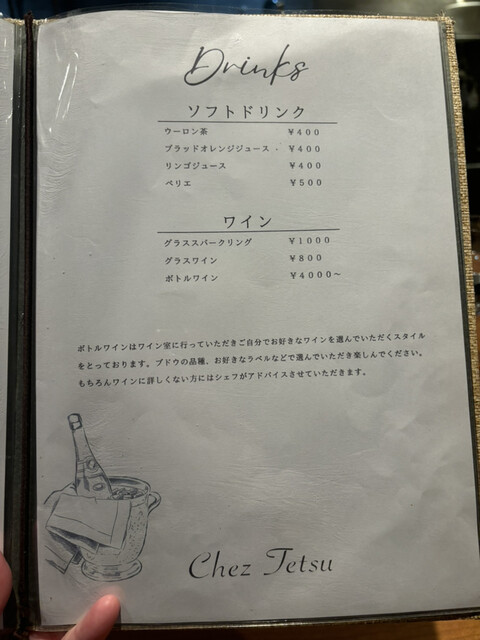 Drinks
ソフトドリンク
ウーロン茶 ￥400
ブラッドオレンジジュース ￥400
リンゴジュース ￥400
ペリエ ￥500
ワイン
グラススパークリング ￥1000
グラスワイン ￥800
ボトルワイン ￥4000～
ボトルワインはワイン室に行っていただきご自分でお好きなワインを選んでいただくスタイル
をとっております。ブドウの品種、お好きなラベルなどで選んでいただき楽しんでください。
もちろんワインに詳しくない方にはシェフがアドバイスさせていただきます。
Chez Tetsu